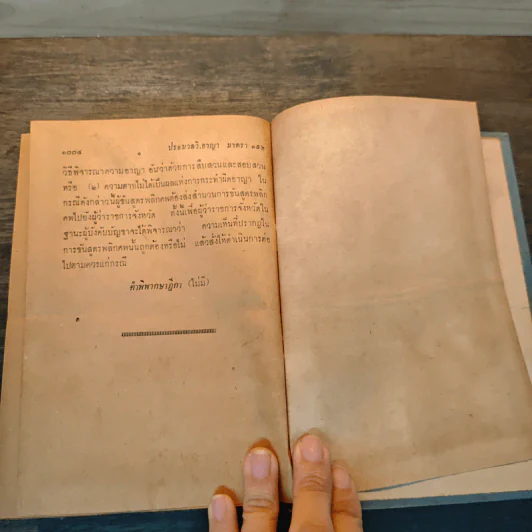 ๑๐๐๘ ประมวลวิ.อาญา มาตรา ๑๕๖
วิธีพิจารณาความอาญา อันว่าด้วยการสืบสวนและสอบสวน
หรือ (๒) ความตายไม่ได้เป็นผลแห่งการกระทำผิดอาญา ใน
กรณีดังกล่าวนี้ผู้ชันสูตรพลิกศพต้องส่งสำนวนการชันสูตรพลิก
ศพไปยังผู้ว่าราชการจังหวัด ทั้งนี้เพื่อผู้ว่าราชการจังหวัดใน
ฐานะผู้บังคับบัญชาจะได้พิจารณาว่า ความเห็นที่ปรากฏใน
การชันสูตรพลิกศพนั้นถูกต้องหรือไม่ แล้วสั่งให้ดำเนินการต่อ
ไปตามควรแก่กรณี
คำพิพากษาฎีกา (ไม่มี)